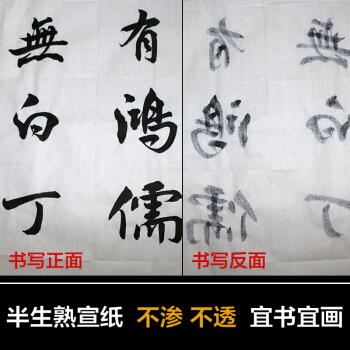 有鸿儒
無白丁
书写正面
有鸿儒
無白丁
书写反面
半生熟宣纸 不渗 不透 宜书宜画